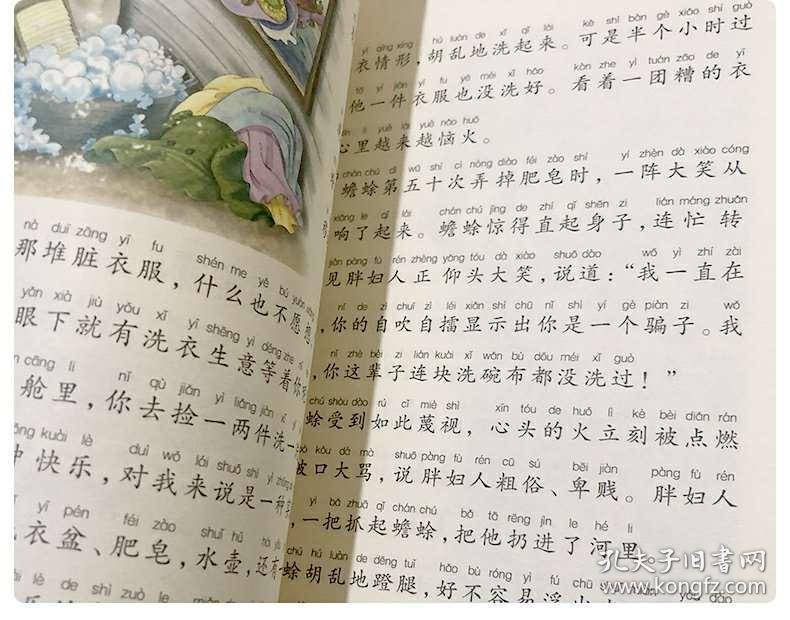 nà duī zāng yī fu shén me yě bú yuàn
那堆脏衣服，什么也不愿
yǎn xià jiù yǒu xǐ yī shēng yì děng zhe
眼下就有洗衣生意等着你
cāng li nǐ qù jiǎn yì liǎng jiàn xǐ
舱里，你去捡一两件洗
kuài lè duì wǒ lái shuō shì yì zhǒng
快乐，对我来说是一种
yī pén féi zào shuǐ hú
衣盆、肥皂，水壶，还有
lè de shì zuò le
yī qíng xíng hú luàn de xǐ qǐ lái kě shì bàn gè xiǎo shí guò
衣情形，胡乱地洗起来。可是半个小时过
tā yí jiàn yī fu yě méi xǐ hǎo kàn zhe yì tuán zāo de yī
他一件衣服也没洗好。看着一团糟的衣
lǐ yuè lái yuè nǎo huǒ
心里越来越恼火。
chán chú dì wǔ shí cì nòng diào féi zào shí yí zhèn dà xiào cóng
蟾蜍第五十次弄掉肥皂时，一阵大笑从
xiǎng le qǐ lái chán chú jīng de zhí qǐ shēn zi lián máng zhuǎn
响了起来。蟾蜍惊得直起身子，连忙转
jiàn pàng fù rén zhèng yǎng tóu dà xiào shuō dào wǒ yì zhí zài
见胖妇人正仰头大笑，说道：“我一直在
nǐ de zì chuī zì léi xiǎn shì chū nǐ shì yí gè piàn zi wǒ
，你的自吹自擂显示出你是一个骗子。我
nǐ zhè bèi zi lián kuài xǐ wǎn bù dōu méi xǐ guò
，你这辈子连块洗碗布都没洗过！”
chú shòu dào rú cǐ miè shì xīn tóu de huǒ lì kè bèi diǎn rán
蜍受到如此蔑视，心头的火立刻被点燃
pò kǒu dà mà shuō pàng fù rén cū sú bēi jiàn pàng fù rén
破口大骂，说胖妇人粗俗、卑贱。胖妇人
yì bǎ zhuā qǐ chán chú bǎ tā rēng jìn le hé li
，一把抓起蟾蜍，把他扔进了河里。
chú hú luàn de dēng tuǐ hǎo bù róng yì fú chū
蜍胡乱地蹬腿，好不容易浮
孔夫子旧书网
www.kongfz.com